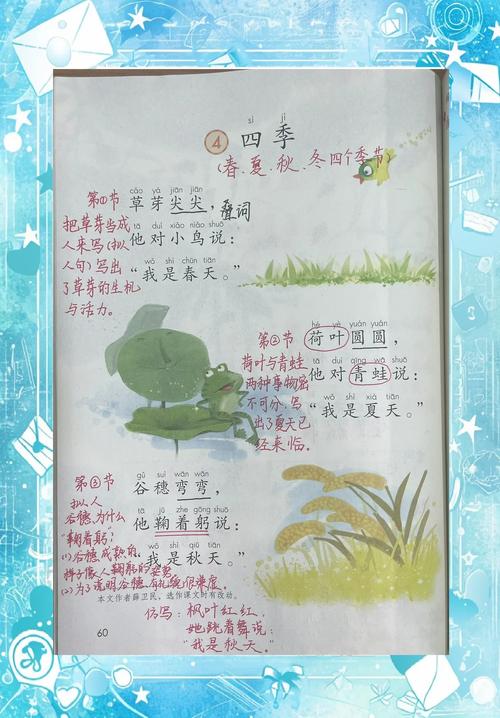 sì jì
④ 四季
(春、夏、秋、冬四个季节)
第①节
cǎo yá jiān jiān
草芽尖尖，
叠词
把草芽当成
人来写(拟
人句)写出
了草芽的生机
与活力。
tā duì xiǎo niǎo shuō
他对小鸟说：
wǒ shì chūn tiān
“我是春天。”
第②节
hé yè yuán yuán
荷叶圆圆，
荷叶与青蛙
两种事物密
不可分，写
出了夏天已
经来临。
tā duì qīng wā shuō
他对青蛙说：
wǒ shì xià tiān
“我是夏天。”
第③节
gǔ suì wān wān
谷穗弯弯，
拟人
谷穗，为什么
“鞠着躬”？
tā jū zhe gōng shuō
他鞠着躬说：
wǒ shì qiū tiān
“我是秋天。”
(1)谷穗成熟前，
样子像人鞠躬的姿势
(2)为了说明谷穗有礼貌很谦虚。
本文作者薛卫民，选作课文时有改动。
60
仿写：枫叶红红，
她跳着舞说：
“我是秋天。”